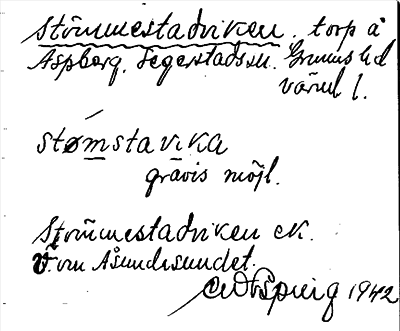 Stömmestadviken. torp å
Aspberg. Segerstads sn. Grums hd
värml l.
stømstavika
gravis möjl.
Stömmestadviken ek.
V. om Åsundsundet.
1942